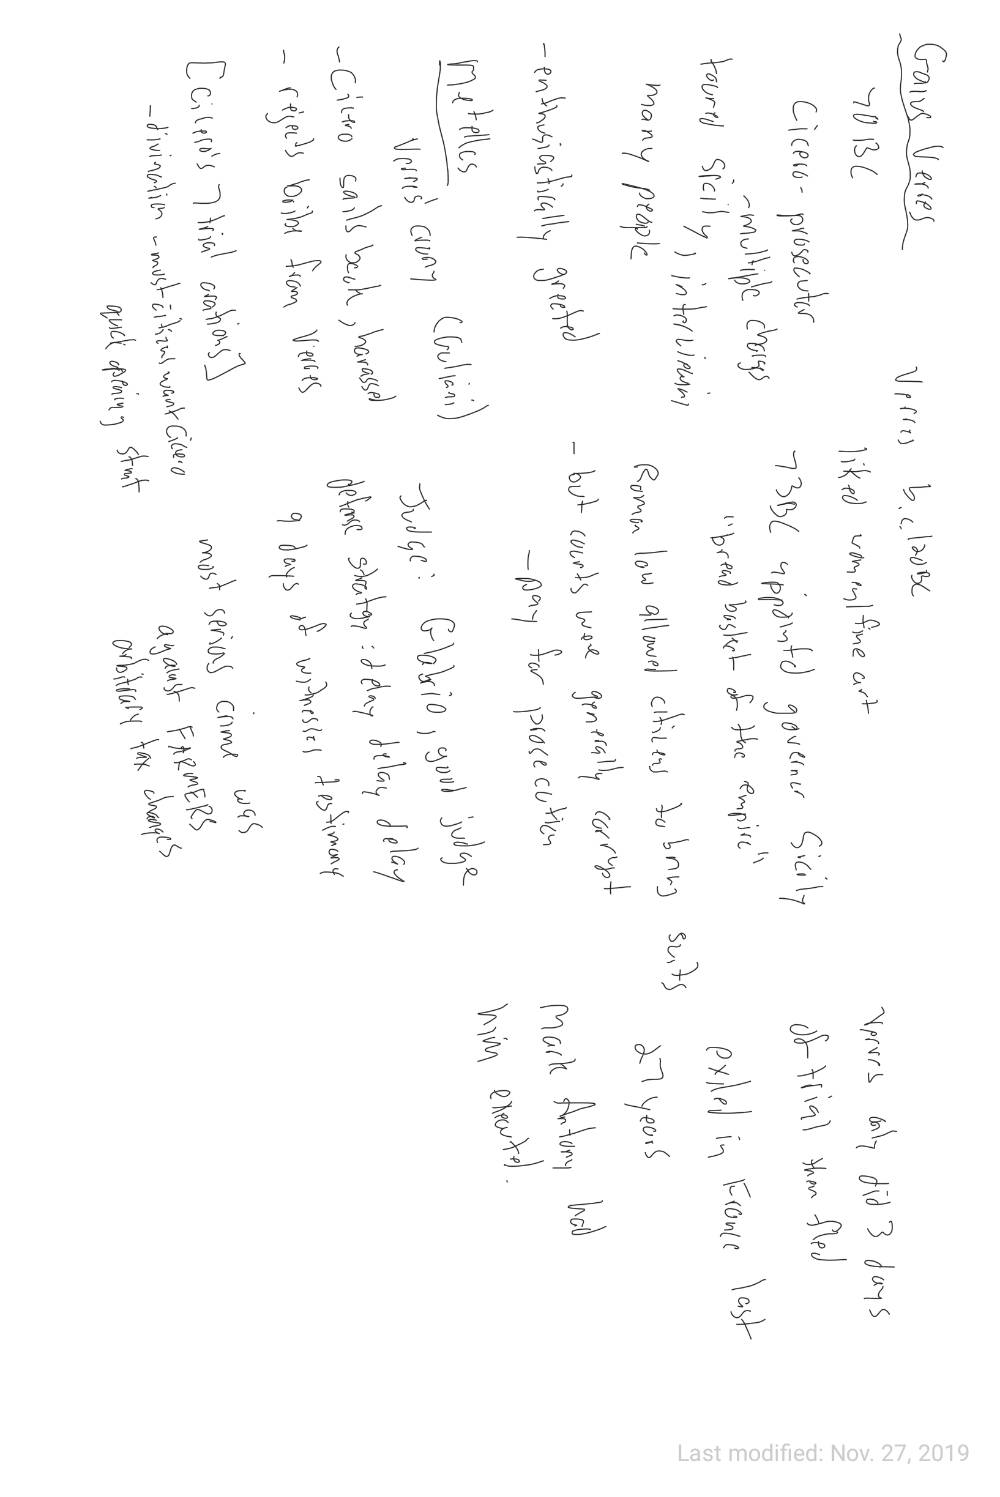 Gaius Verres
70 BC
Cicero - prosecutor
- multiple charges
toured Sicily, interviewing
many people
- enthusiastically greeted
Metellus
Verres' crony (Guliani)
- Cicero sails back, harassed
- rejects bribe from Verres
[Cicero's 7 trial orations]
- divination - most citizens want Cicero
quick opening stmt
Verres b.c. 120BC
liked women/fine art
73BC appointd governor Sicily
"bread basket of the empire"
Roman law allowed citizens to bring suits
- but courts were generally corrupt
- pay for prosecution
Judge: Glabrio, good judge
defense stratgy: delay delay delay
9 days of witnesses testimony
most serious crime was
against FARMERS
arbitrary tax changes
Verres only did 3 days
of trial then fled
exiled in France last
27 years
Mark Antony had
him executed.
Last modified: Nov. 27, 2019